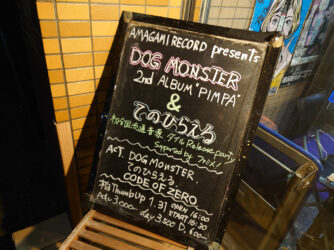 AMAGAMI RECORD presents
DOG MONSTER
2nd ALBUM "PIMPA"
&
てのひらえる
全国流通音源 ダブル Release party
Supported by
Act. DOG MONSTER
てのひらえる.
CODE OF ZERO
ThumbUp 1.31 OPEN 16:00
START 16:30
Adv 3,000 day 3,500 D.600